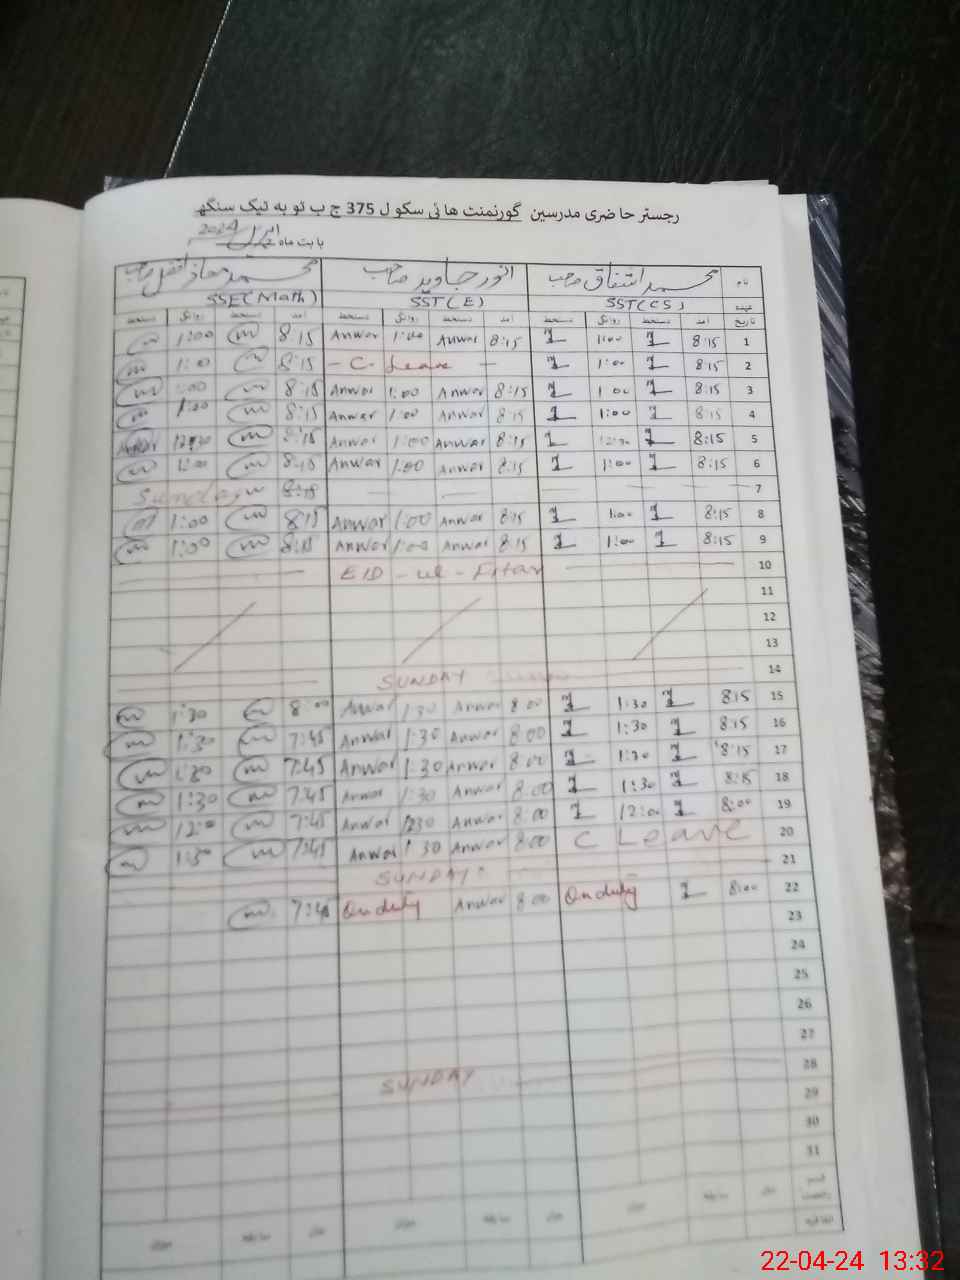 رجسٹر حاضری مدرسین گورنمنٹ ہائی سکول 375 ج ب ٹوبہ ٹیک سنگھ
بابت ماہ اپریل 2024
نام محمد اشفاق صاحب انور جاوید صاحب محمد معاذ افضل صاحب
عہدہ SST(CS) SST(E) SSE(Math)
تاریخ آمد دستخط روانگی دستخط آمد دستخط روانگی دستخط آمد دستخط روانگی دستخط
1:00 8:15 Anwar 1:00 Anwar 8:15 1:00 8:15 1
1:00 8:15 - C. Leave - 1:00 8:15 2
1:00 8:15 Anwar 1:00 Anwar 8:15 1:00 8:15 3
1:00 8:15 Anwar 1:00 Anwar 8:15 1:00 8:15 4
12:30 8:15 Anwar 1:00 Anwar 8:15 12:30 8:15 5
1:00 8:15 Anwar 1:00 Anwar 8:15 1:00 8:15 6
Sunday 8:15 7
1:00 8:15 Anwar 1:00 Anwar 8:15 1:00 8:15 8
1:00 8:15 Anwar 1:00 Anwar 8:15 1:00 8:15 9
EID - ul - Fitar 10
11
12
13
SUNDAY 14
1:30 8:00 Anwar 1:30 Anwar 8:00 1:30 8:15 15
1:30 7:45 Anwar 1:30 Anwar 8:00 1:30 8:15 16
1:30 7:45 Anwar 1:30 Anwar 8:00 1:30 8:15 17
1:30 7:45 Anwar 1:30 Anwar 8:00 1:30 8:15 18
12:00 7:45 Anwar 1230 Anwar 8:00 12:00 8:00 19
1:30 7:45 Anwar 1:30 Anwar 8:00 C Leave 20
SUNDAY 21
7:45 On duty Anwar 8:00 On duty 8:00 22
23
24
25
26
27
SUNDAY 28
29
30
31
22-04-24 13:32